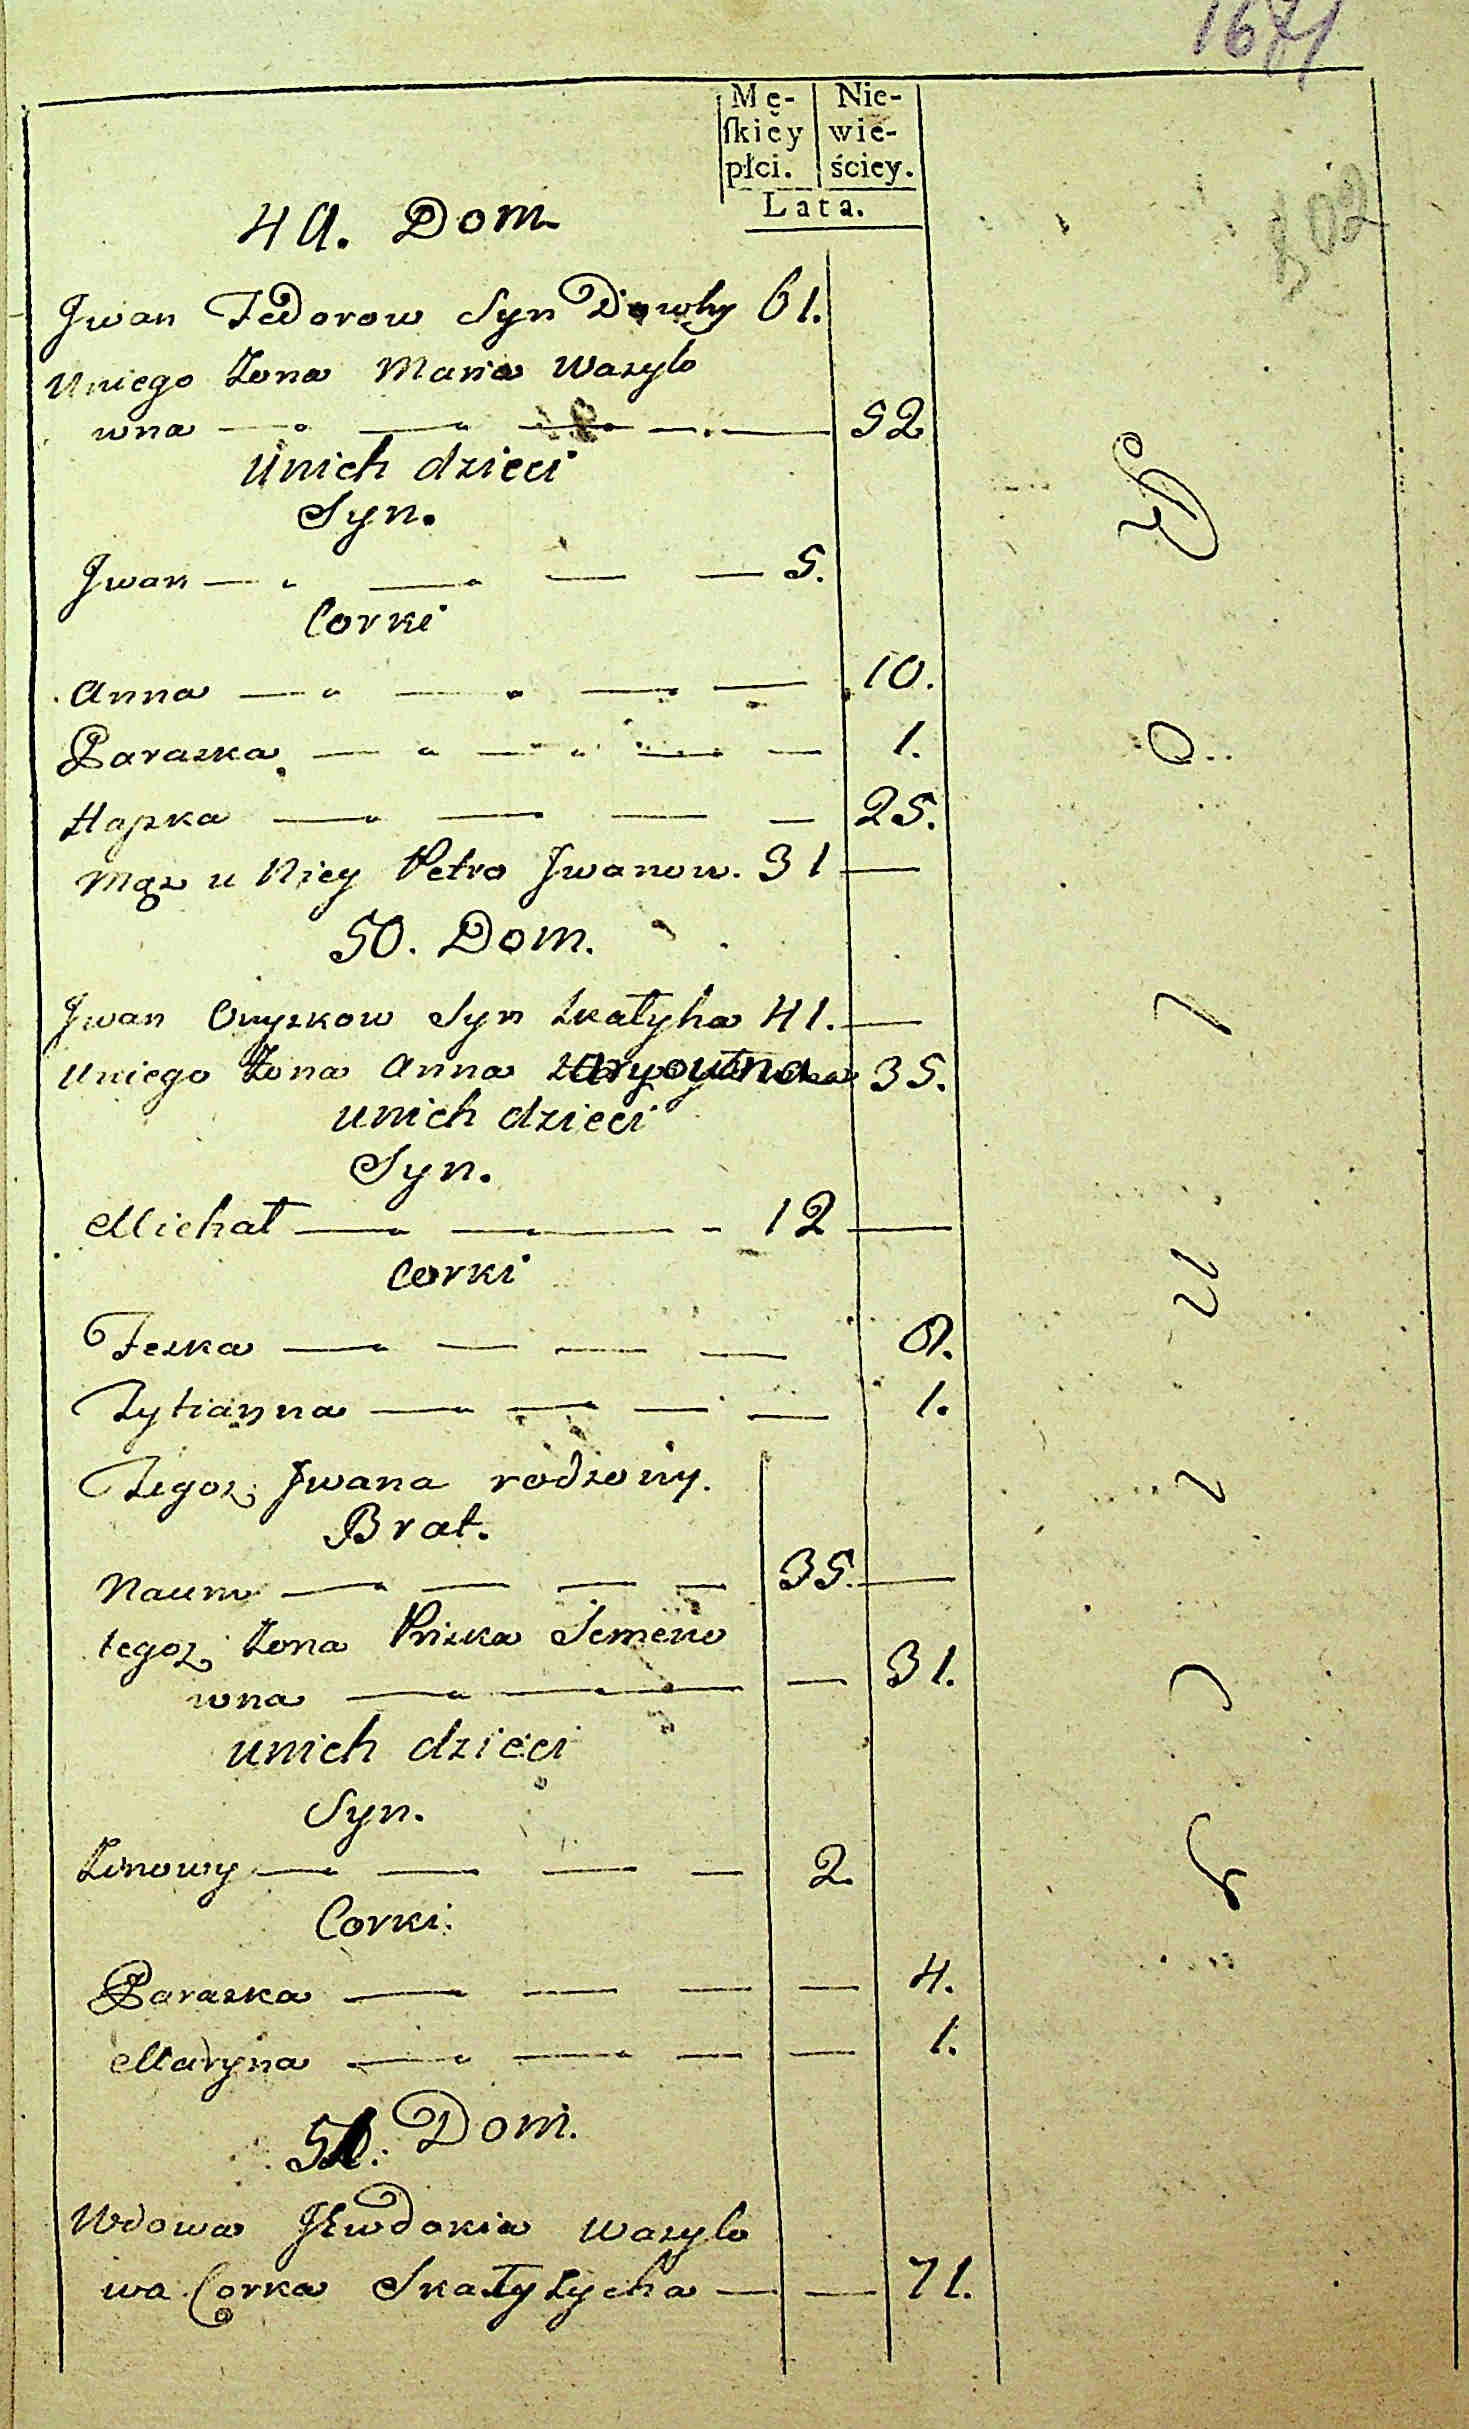 1671
Mę- Nie-
ſkiey wie-
płci. ściey.
Lata.
802
49. Dom
Jwan Fedorow Syn Dowhy 61.
Uniego Żona Maria Wasylo
wna 52
Unich dzieci
Syn.
Jwan 5.
Corki
Anna 10.
Paraska 1.
Hapka 25.
Mąz u Niey Petro Jwanow. 31
50. Dom.
Jwan Onyskow Syn Skałyha 41.
Uniego Żona Anna 35.
unich dzieci
Syn.
Michał 12
Corki
Feska 9.
Tytianna 1.
Tegoz Jwana rodzony.
Brat.
Naum 35.
tegoz Żona Priska Semeno
wna 31.
unich dzieci
Syn.
Zenowy 2.
Corki.
Paraska 4.
Maryna 1.
51. Dom.
Wdowa Jewdokia Wasylo
wa Corka Skałyżycha 71.